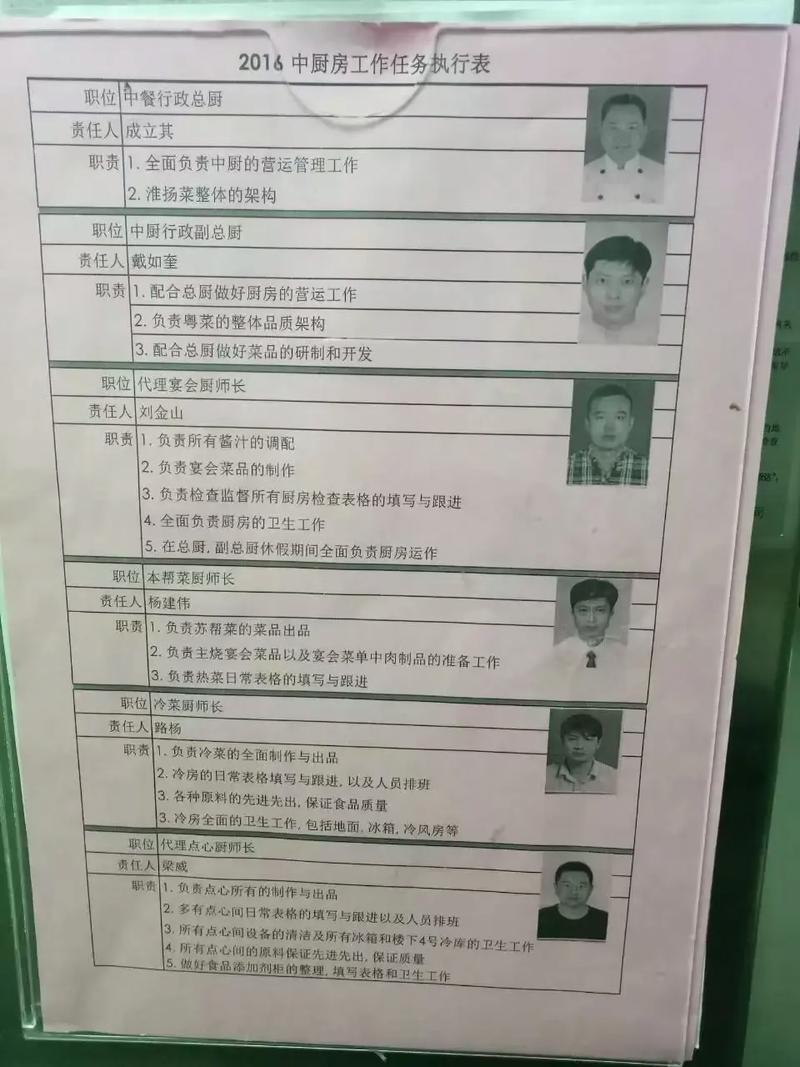 2016 中厨房工作任务执行表
职位 中餐行政总厨
责任人 成立其
职责 1. 全面负责中厨的营运管理工作
2. 淮扬菜整体的架构
职位 中厨行政副总厨
责任人 戴如奎
职责 1. 配合总厨做好厨房的营运工作
2. 负责粤菜的整体品质架构
3. 配合总厨做好菜品的研制和开发
职位 代理宴会厨师长
责任人 刘金山
职责 1. 负责所有酱汁的调配
2. 负责宴会菜品的制作
3. 负责检查监督所有厨房检查表格的填写与跟进
4. 全面负责厨房的卫生工作
5. 在总厨, 副总厨休假期间全面负责厨房运作
职位 本帮菜厨师长
责任人 杨建伟
职责 1. 负责苏帮菜的菜品出品
2. 负责主烧宴会菜品以及宴会菜单中肉制品的准备工作
3. 负责热菜日常表格的填写与跟进
职位 冷菜厨师长
责任人 路杨
职责 1. 负责冷菜的全面制作与出品
2. 冷房的日常表格填写与跟进, 以及人员排班
3. 各种原料的先进先出, 保证食品质量
3. 冷房全面的卫生工作, 包括地面, 冰箱, 冷风房等
职位 代理点心厨师长
责任人 梁威
职责 1. 负责点心所有的制作与出品
2. 多有点心间日常表格的填写与跟进以及人员排班
3. 所有点心间设备的清洁及所有冰箱和楼下4号冷库的卫生工作
4. 所有点心间的原料保证先进先出, 保证质量
5. 做好食品添加剂柜的整理, 填写表格和卫生工作